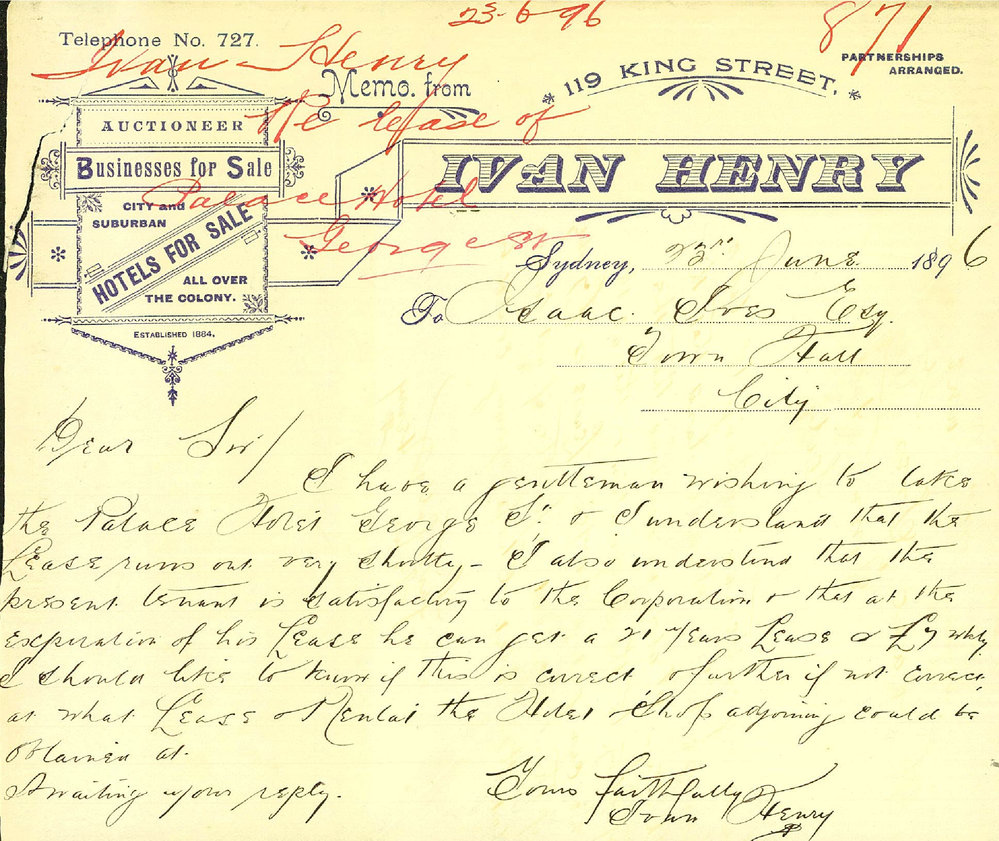 23-6-96
871
Telephone No. 727.
Ivan Henry
Re lease of
Palace Hotel
George St
Memo. from
119 KING STREET.
PARTNERSHIPS
ARRANGED.
IVAN HENRY
AUCTIONEER
Businesses for Sale
CITY and
SUBURBAN
HOTELS FOR SALE
ALL OVER
THE COLONY.
ESTABLISHED 1884.
Sydney, 23rd June 1896
To Isaac Ives Esq.
Town Hall
City
Dear Sir/
I have a gentleman wishing to take
the Palace Hotel George St. & I understand that the
Lease runs out very shortly - I also understand that the
present tenant is satisfactory to the Corporation & that at the
expiration of his Lease he can get a 21 years Lease @ £7 wkly
I should like to know if this is correct & further if not correct
at what Lease & Rental the Hotel & Shop adjoining could be
obtained at.
Awaiting your reply.
Yours faithfully
Ivan Henry